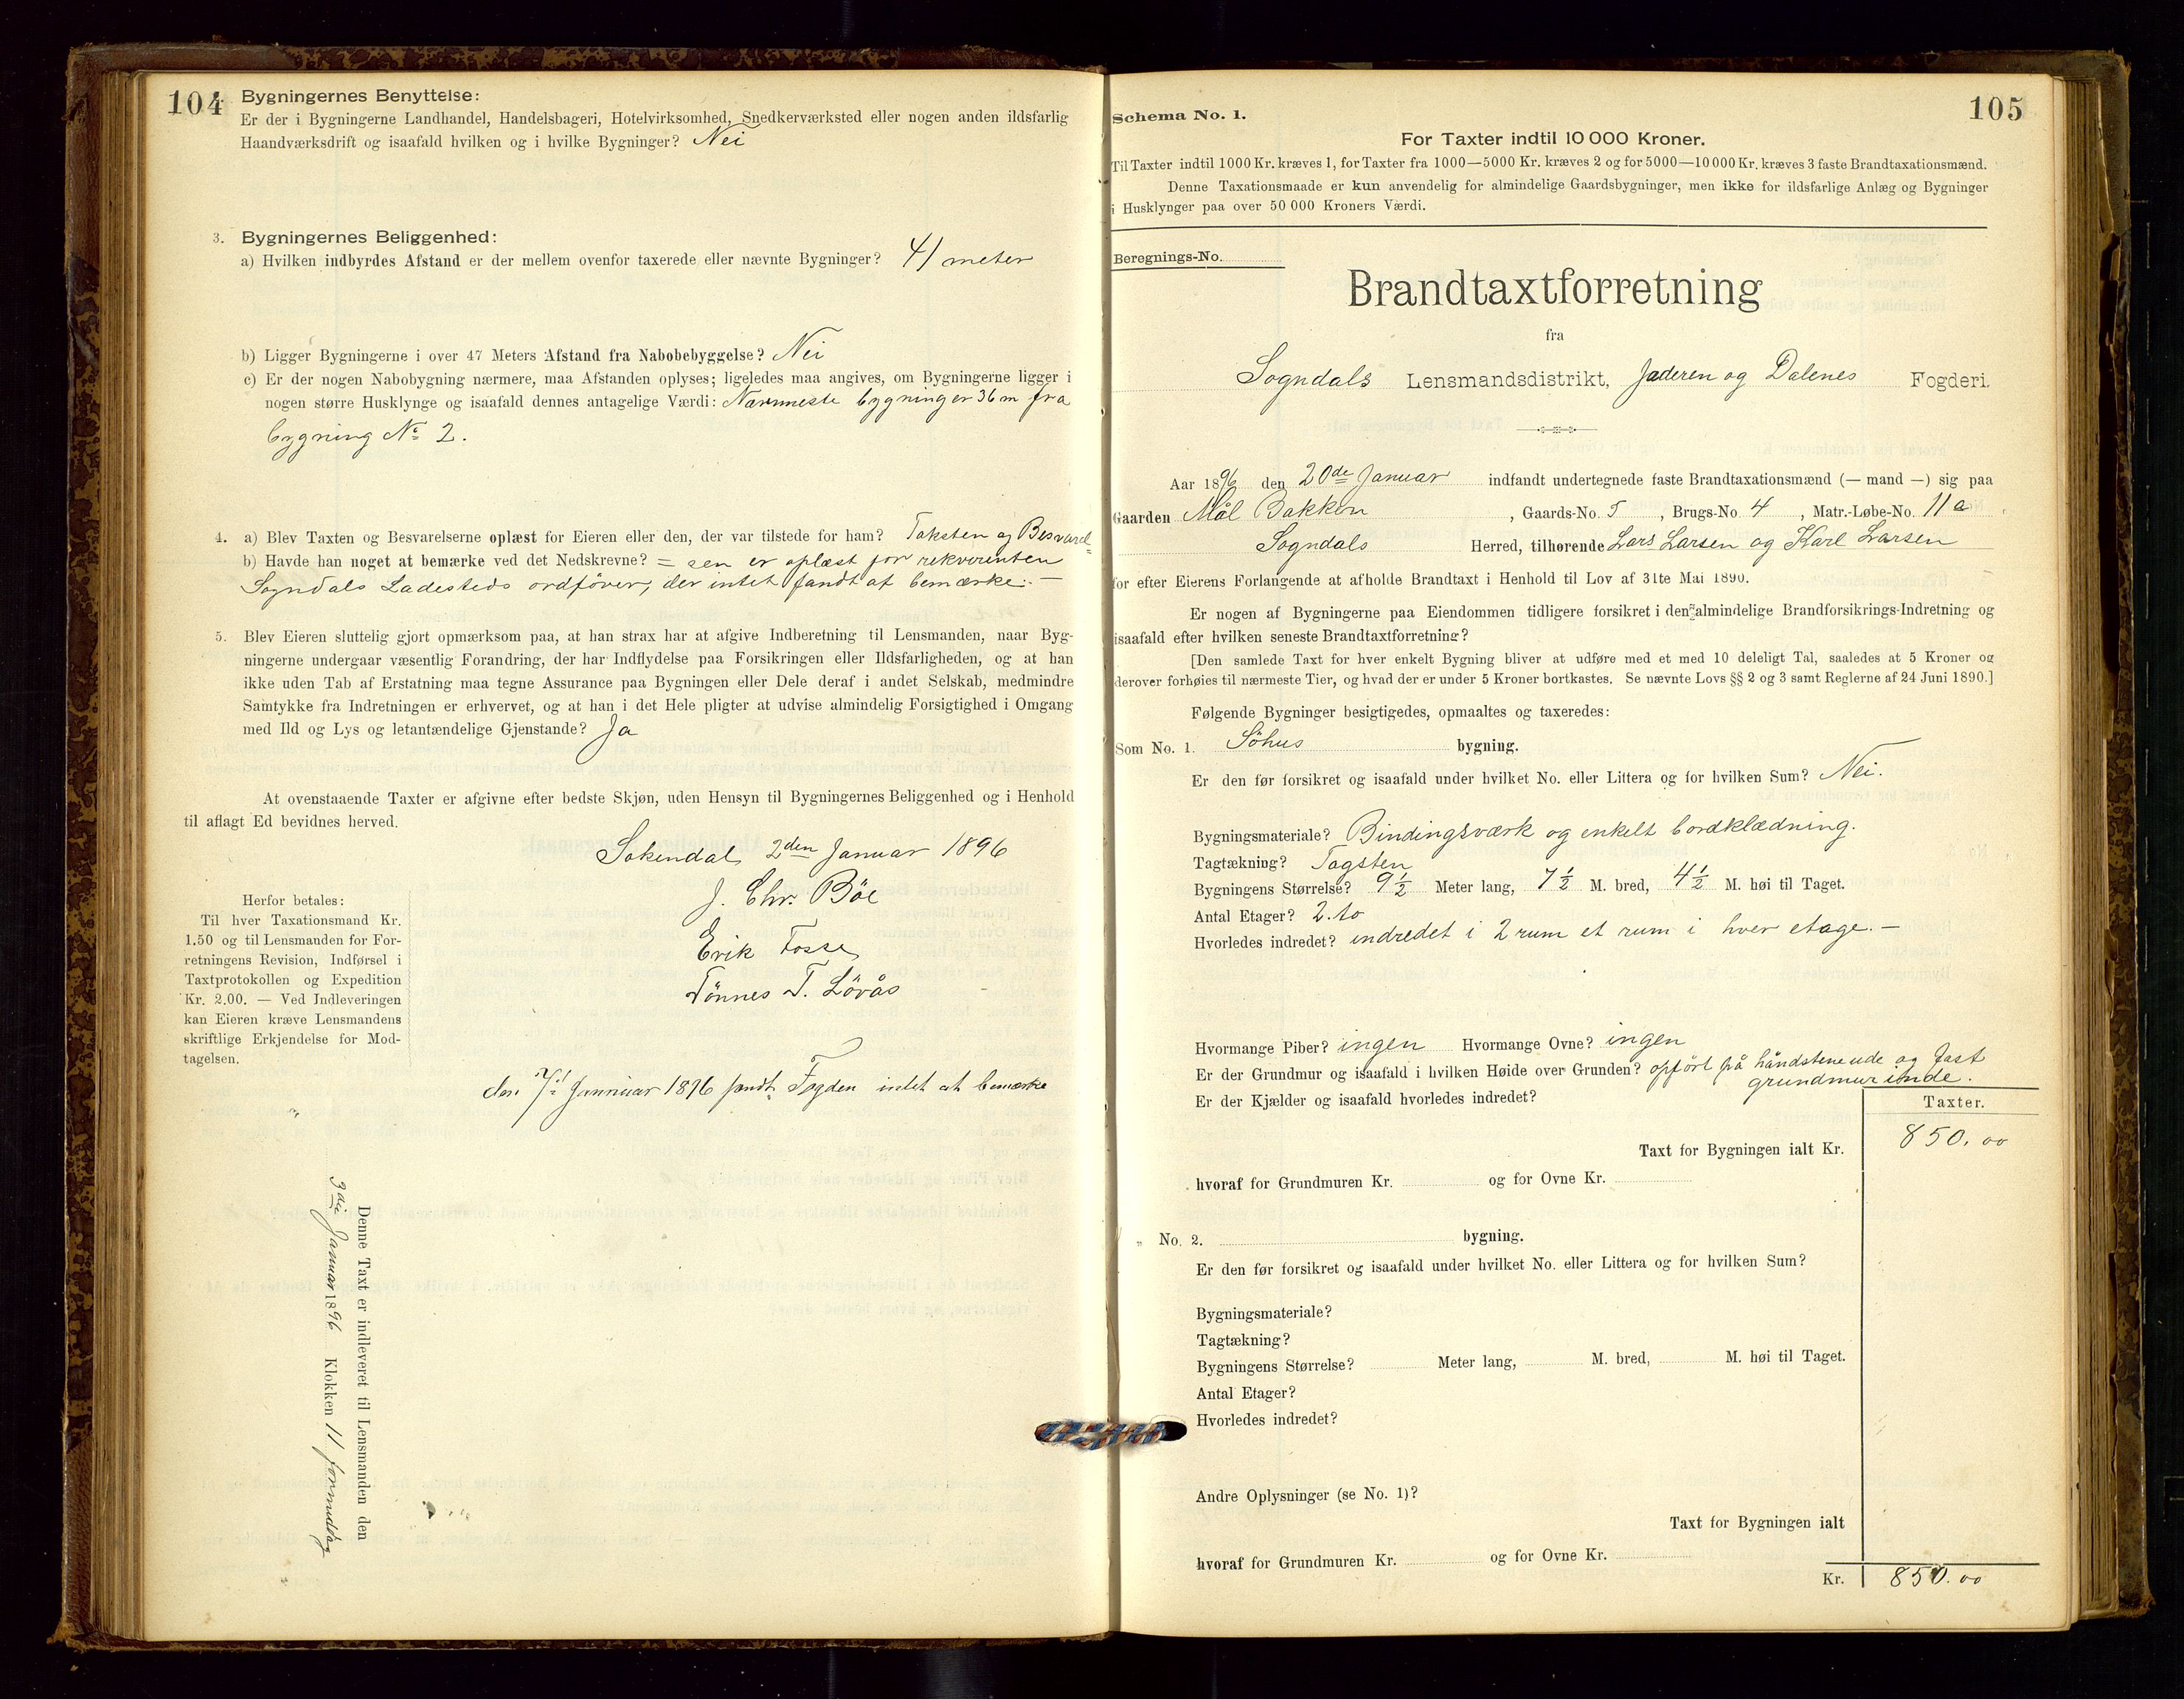 104
Bygningernes Benyttelse:
Er der i Bygningerne Landhandel, Handelsbageri, Hotelvirksomhed, Snedkerværksted eller nogen anden ildsfarlig
Haandværksdrift og isaafald hvilken og i hvilke Bygninger? Nei
3. Bygningernes Beliggenhed:
a) Hvilken indbyrdes Afstand er der mellem ovenfor taxerede eller nævnte Bygninger? 41 meter
b) Ligger Bygningerne i over 47 Meters Afstand fra Nabobebyggelse? Nei
c) Er der nogen Nabobygning nærmere, maa Afstanden oplyses; ligeledes maa angives, om Bygningerne ligger i
nogen større Husklynge og isaafald dennes antagelige Værdi: Nærmeste bygning er 36 m fra
bygning No 2.
4. a) Blev Taxten og Besvarelserne oplæst for Eieren eller den, der var tilstede for ham? Taksten og Besvarel=
b) Havde han noget at bemærke ved det Nedskrevne? = sen er oplæst for rekvirenten
Sogndals Ladesteds ordfører, der intet fandt at bemærke. —
5. Blev Eieren sluttelig gjort opmærksom paa, at han strax har at afgive Indberetning til Lensmanden, naar Byg-
ningerne undergaar væsentlig Forandring, der har Indflydelse paa Forsikringen eller Ildsfarligheden, og at han
ikke uden Tab af Erstatning maa tegne Assurance paa Bygningen eller Dele deraf i andet Selskab, medmindre
Samtykke fra Indretningen er erhvervet, og at han i det Hele pligter at udvise almindelig Forsigtighed i Omgang
med Ild og Lys og letantændelige Gjenstande? Ja
At ovenstaaende Taxter er afgivne efter bedste Skjøn, uden Hensyn til Bygningernes Beliggenhed og i Henhold
til aflagt Ed bevidnes herved.
Sokendal, 2den Januar 1896
J. Chr. Böe
Erik Fosse
Tönnes T. Lövås
Herfor betales:
Til hver Taxationsmand Kr.
1.50 og til Lensmanden for For-
retningens Revision, Indførsel i
Taxtprotokollen og Expedition
Kr. 2.00. — Ved Indleveringen
kan Eieren kræve Lensmandens
skriftlige Erkjendelse for Mod-
tagelsen.
den 7/1 Januar 1896 fandt Fogden intet at bemærke
Denne Taxt er indleveret til Lensmanden den
3die Januar 1896 Klokken 11 formiddag
105
Schema No. 1.
For Taxter indtil 10 000 Kroner.
Til Taxter indtil 1000 Kr. kræves 1, for Taxter fra 1000—5000 Kr. kræves 2 og for 5000—10 000 Kr. kræves 3 faste Brandtaxationsmænd.
Denne Taxationsmaade er kun anvendelig for almindelige Gaardsbygninger, men ikke for ildsfarlige Anlæg og Bygninger
i Husklynger paa over 50 000 Kroners Værdi.
Beregnings-No.
Brandtaxtforretning
fra
Sogndals Lensmandsdistrikt, Jæderen og Dalenes Fogderi.
Aar 1896 den 20de Januar indfandt undertegnede faste Brandtaxationsmænd (— mand —) sig paa
Gaarden Mål Bakken, Gaards-No. 5, Brugs-No. 4, Matr.-Løbe-No. 11 a.
Sogndals Herred, tilhørende Lars Larsen og Karl Larsen
for efter Eierens Forlangende at afholde Brandtaxt i Henhold til Lov af 31te Mai 1890.
Er nogen af Bygningerne paa Eiendommen tidligere forsikret i den almindelige Brandforsikrings-Indretning og
isaafald efter hvilken seneste Brandtaxtforretning?
[Den samlede Taxt for hver enkelt Bygning bliver at udføre med et med 10 deleligt Tal, saaledes at 5 Kroner og
derover forhøies til nærmeste Tier, og hvad der er under 5 Kroner bortkastes. Se nævnte Lovs §§ 2 og 3 samt Reglerne af 24 Juni 1890.]
Følgende Bygninger besigtigedes, opmaaltes og taxeredes:
Som No. 1. Söhus bygning.
Er den før forsikret og isaafald under hvilket No. eller Littera og for hvilken Sum? Nei.
Bygningsmateriale? Bindingsværk og enkelt bordklædning.
Tagtækning? Tagsten
Bygningens Størrelse? 9½ Meter lang, 7½ M. bred, 4½ M. høi til Taget.
Antal Etager? 2. to
Hvorledes indredet? indredet i 2 rum et rum i hver etage. —
Hvormange Piber? ingen Hvormange Ovne? ingen
Er der Grundmur og isaafald i hvilken Høide over Grunden? opført på håndstene ude og fast
grundmur inde.
Er der Kjælder og isaafald hvorledes indredet?
Taxter.
Taxt for Bygningen ialt Kr. 850. 00
hvoraf for Grundmuren Kr. og for Ovne Kr.
„ No. 2. bygning.
Er den før forsikret og isaafald under hvilket No. eller Littera og for hvilken Sum?
Bygningsmateriale?
Tagtækning?
Bygningens Størrelse? Meter lang, M. bred, M. høi til Taget.
Antal Etager?
Hvorledes indredet?
Andre Oplysninger (se No. 1)?
Taxt for Bygningen ialt
hvoraf for Grundmuren Kr. og for Ovne Kr.
Kr. 850. 00